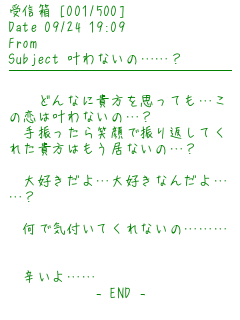 受信箱 [001/500]
Date 09/24 19:09
From
Subject 叶わないの……？
どんなに貴方を思っても…こ
の恋は叶わないの…？
手振ったら笑顔で振り返してく
れた貴方はもう居ないの…？
大好きだよ…大好きなんだよ…
…？
何で気付いてくれないの………
辛いよ……
- END -